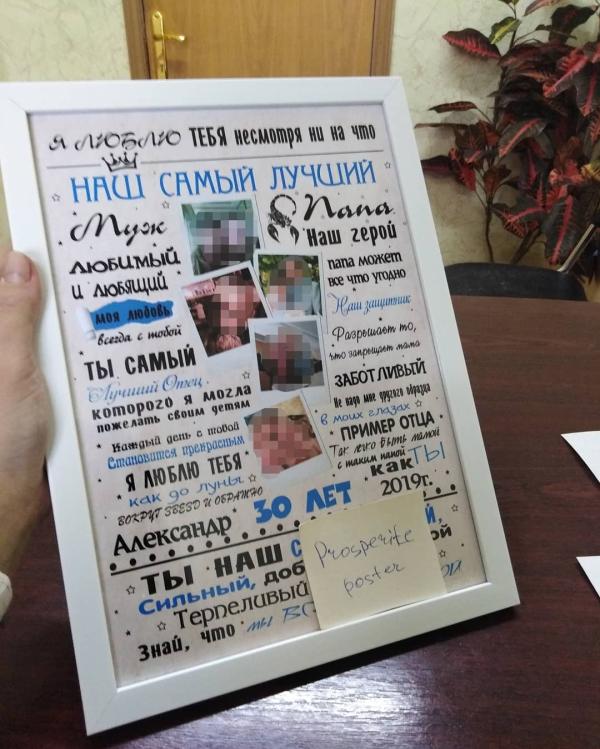 Я ЛЮБЛЮ ТЕБЯ несмотря ни на что
НАШ САМЫЙ ЛУЧШИЙ
Муж
ЛЮБИМЫЙ
И ЛЮБЯЩИЙ
моя любовь
всегда с тобой
ТЫ САМЫЙ
Лучший Отец
которого я могла
пожелать своим детям
Каждый день с тобой
Становится прекрасным
Я ЛЮБЛЮ ТЕБЯ
как до луны
ВОКРУГ ЗВЕЗД И ОБРАТНО
Папа
Наш герой
папа может
все что угодно
Наш защитник
Разрешает то,
что запрещает мама
ЗАБОТЛИВЫЙ
Не надо мне другого образца
в моих глазах
ПРИМЕР ОТЦА
Так легко быть мамой
с таким папой
как ТЫ
Александр 30 ЛЕТ 2019г.
ТЫ НАШ
Сильный,
Терпеливый
Знай, что мы
Prosperite
poster